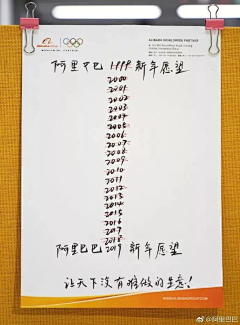 阿里巴巴 1999 新年愿望
2000
2001
2002
2003
2004
2005
2006
2007
2008
2009
2010
2011
2012
2013
2014
2015
2016
2017
2018
阿里巴巴 2019 新年愿望
让天下没有难做的生意!
@阿里巴巴